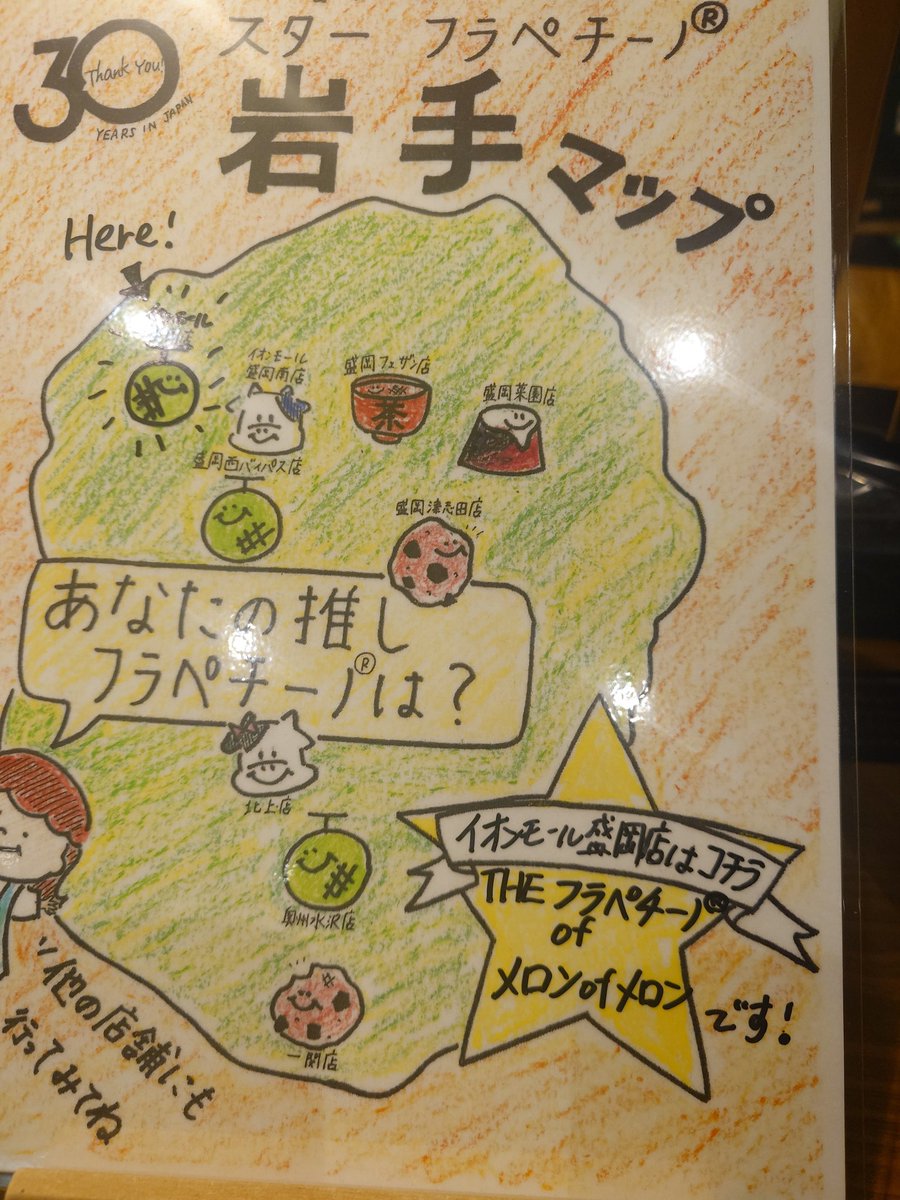 30
Thank You!
YEARS IN JAPAN
スター フラペチーノ®
岩手マップ
Here!
モール
店
イオンモール
盛岡南店
盛岡フェザン店
茶
盛岡菜園店
盛岡西バイパス店
盛岡津志田店
あなたの推し
フラペチーノ®は?
北上店
奥州水沢店
一関店
イオンモール盛岡店はコチラ
THE フラペチーノ®
of
メロンofメロン
です!
他の店舗にも
行ってみてね